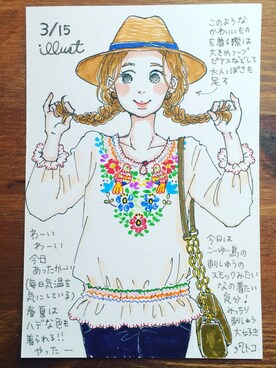 3/15
illust
このような
かわいいもの
を着る際は
大きめフープ
ピアスなどして
大人っぽさも
足す
わーい
わーい
今日
あったかーい
(毎日気温を
気にしている)
春夏は
ハデな色も
着られる!!
やったー
今日は
こーゆー鳥の
刺しゅうの
スモックみたい
なの着たい
気分!
みっちり
刺しゅう
大好き